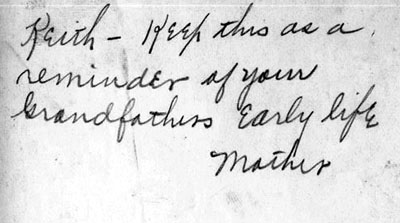 Keith - Keep this as a
reminder of your
Grandfathers Early life
Mother